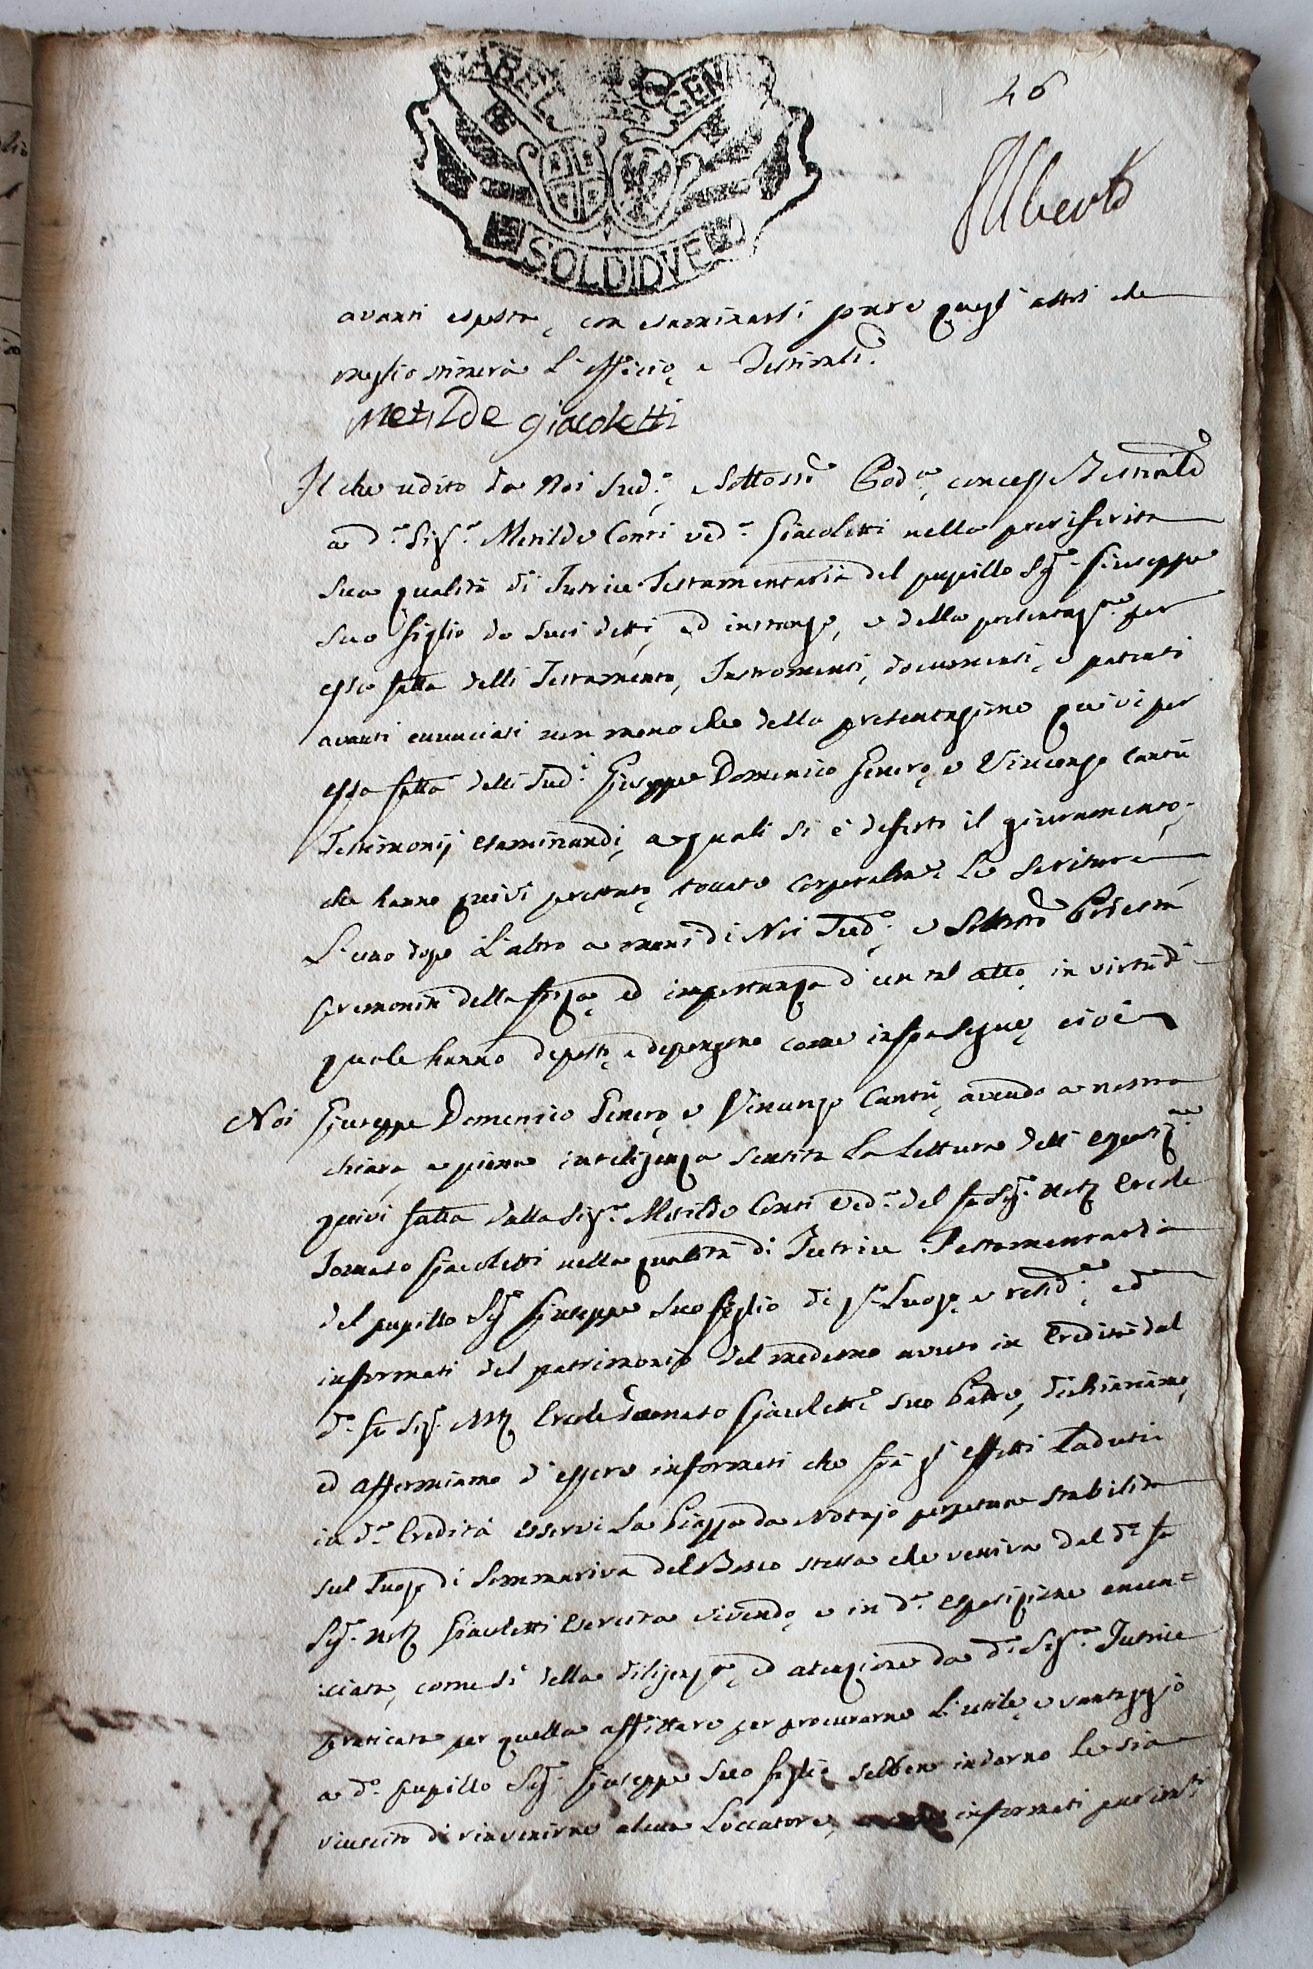 GABEL GENE
SOLDI DVE
46
Alberto
avanti esposta, con esaminarsi pure quegl'altri che
meglio stimerà L'Officio, e Testimli.
Metilde giacoletti
Il che udito da Noi Sud.º, e Sottossto Pod.à, concesse Testimli
a d.ª Sig.ª Metilde Conti ved.ª Giacoletti nella preriferita
sua qualità di Tutrice Testamentaria del pupillo Sig.r Giuseppe
suo figlio de suoi detti, ed instanze, e della presentaz.ne per
essa fatta delli Testamento, Instromenti, documenti, e patenti
avanti enunciati non meno che della presentazione quivi per
essa fatta delli Sud.i Giuseppe Domenico Genero, e Vincenzo Cantù
Testimonij esaminandi, a quali si è deferto il giuramento,
che hanno quivi prestato, toccate corporalm.e Le Scritture
L'uno dopo L'altro a mani di Noi Sud.º, e Sottosto Podestà
seremoniti della forza, ed importanza d'un tal atto, in virtù di
quale hanno deposto, e depongono come infra segue, cioè
Noi Giuseppe Domenico Genero, e Vincenzo Cantù, avendo a nostra
chiara, e piena inteligenza sentita La Lettura dell'esposiz.ne
quivi fatta dalla Sig.ª Metilde Conti Ved.ª del fu Sig.r Nott.º Ercole
Tomaso Giacoletti nella qualità di Tutrice Testamentaria
del pupillo Sig.r Giuseppe suo figlio di q.to Luogo, e resid.e, ed
informati del patrimonio del medemo avuto in Eredità dal
d.º fu Sig.r Nott.º Ercole Tomaso Giacoletti suo Padre, dichiariamo,
ed affermiamo d'essere informati che frà gl'effetti Caduti
in d.ª Eredità esservi La Piazza da Notajo perpetua stabilita
sul Luogo di Sommariva del Bosco stessa che veniva dal d.º fu
Sig.r Nott.º Giacoletti Esercita vivendo, e in d.ª esposizione enun=
ciata, come sì della diligenza, ed atenzione da d.ª Sig.ra Tutrice
praticata per quella affittare per procurarne L'utile, e vantaggio
a d.º pupillo Sig.r Giuseppe suo figlio sebben indarno Le sia
riuscito di rinvenirne alcun Loccatore, informati parim.ti